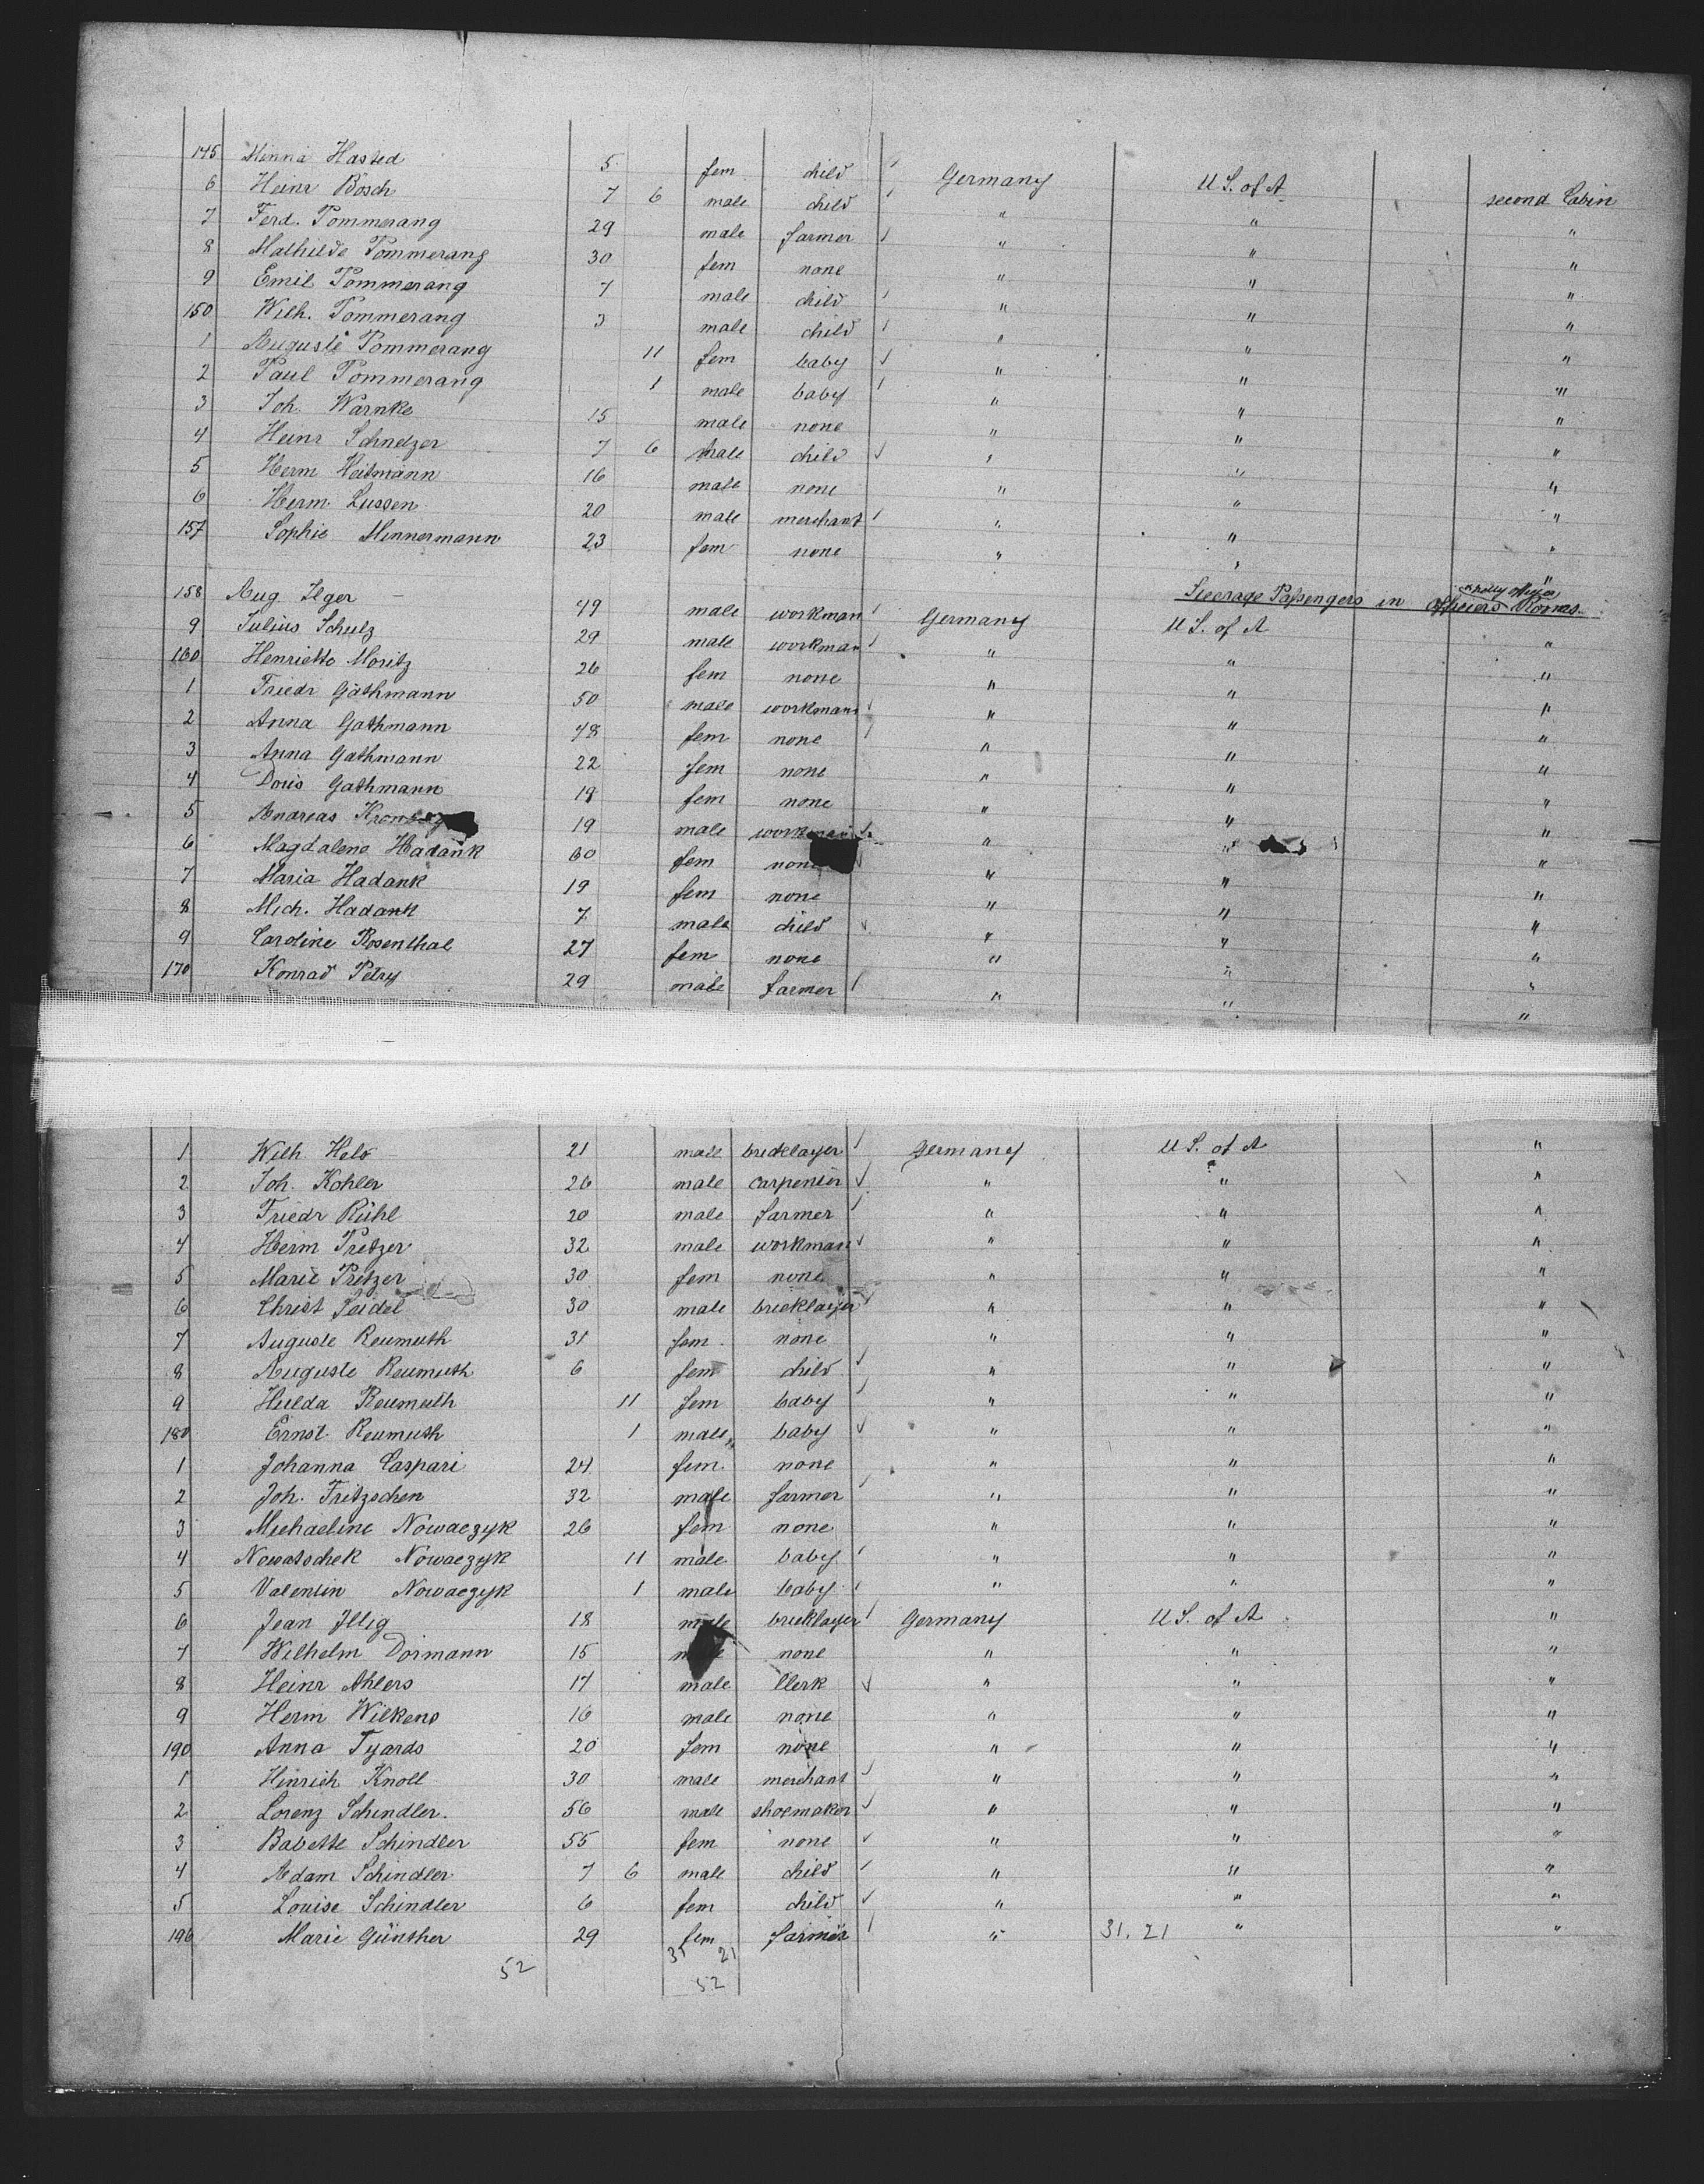 145 Minna Hasted 5 fem child Germany U S. of A second Cabin
6 Heinr Bosch 7 6 male child " " "
7 Ferd. Pommerang 29 male farmer " " "
8 Mathilde Pommerang 30 fem none " " "
9 Emil Pommerang 7 male child " " "
150 Wilh. Pommerang 3 male child " " "
1 Auguste Pommerang 11 fem baby " " "
2 Paul Pommerang 1 male baby " " "
3 Joh. Warnke 15 male none " " "
4 Heinr Schnelzer 7 6 male child " " "
5 Herm Heitmann 16 male none " " "
6 Herm. Lussen 20 male merchant " " "
157 Sophie Minnermann 23 fem none " " "
Steerage Passengers in Officiers Rooms.
158 Aug Ilger 49 male workman Germany U S. of A "
9 Julius Schulz 29 male workman " " "
160 Henriette Moritz 26 fem none " " "
1 Friedr Gathmann 50 male workman " " "
2 Anna Gathmann 48 fem none " " "
3 Anna Gathmann 22 fem none " " "
4 Doris Gathmann 18 fem none " " "
5 Andreas 19 male workman " " "
6 Magdalena Hadank 60 fem none " " "
7 Maria Hadank 19 fem none " " "
8 Mich. Hadank 7 male child " " "
9 Caroline Rosenthal 27 fem none " " "
170 Konrad Petry 29 male farmer " " "
1 Wilh 21 male bricklayer Germany U S. of A "
2 Joh. Kohler 26 male carpenter " " "
3 Friedr Rühl 20 male farmer " " "
4 Herm Pretzer 32 male workman " " "
5 Marie Pretzer 30 fem none " " "
6 Christ Seidel 30 male bricklayer " " "
7 Auguste Reumuth 31 fem. none " " "
8 Auguste Reumuth 6 fem child " " "
9 Hulda Reumuth 11 fem baby " " "
180 Ernst Reumuth 1 male baby " " "
1 Johanna Caspari 24 fem. none " " "
2 Joh. Fritzschen 32 male farmer " " "
3 Michaeline Nowaczyk 26 fem none " " "
4 Nowatschek Nowaczyk 11 male baby " " "
5 Valentin Nowaczyk 1 male baby " " "
6 Jean Illig 18 male bricklayer Germany U S. of A "
7 Wilhelm Dormann 15 male none " " "
8 Heinr Ahlers 17 male Clerk " " "
9 Herm Wilkens 16 male none " " "
190 Anna Tyards 20 fem none " " "
1 Hinrich Knoll 30 male merchant " " "
2 Lorenz Schindler. 56 male shoemaker " " "
3 Babette Schindler 55 fem none " " "
4 Adam Schindler 7 6 male child " " "
5 Louise Schindler 6 fem child " " "
196 Marie Günther 29 fem farmer " 31. 21 " "
52 31 21
52